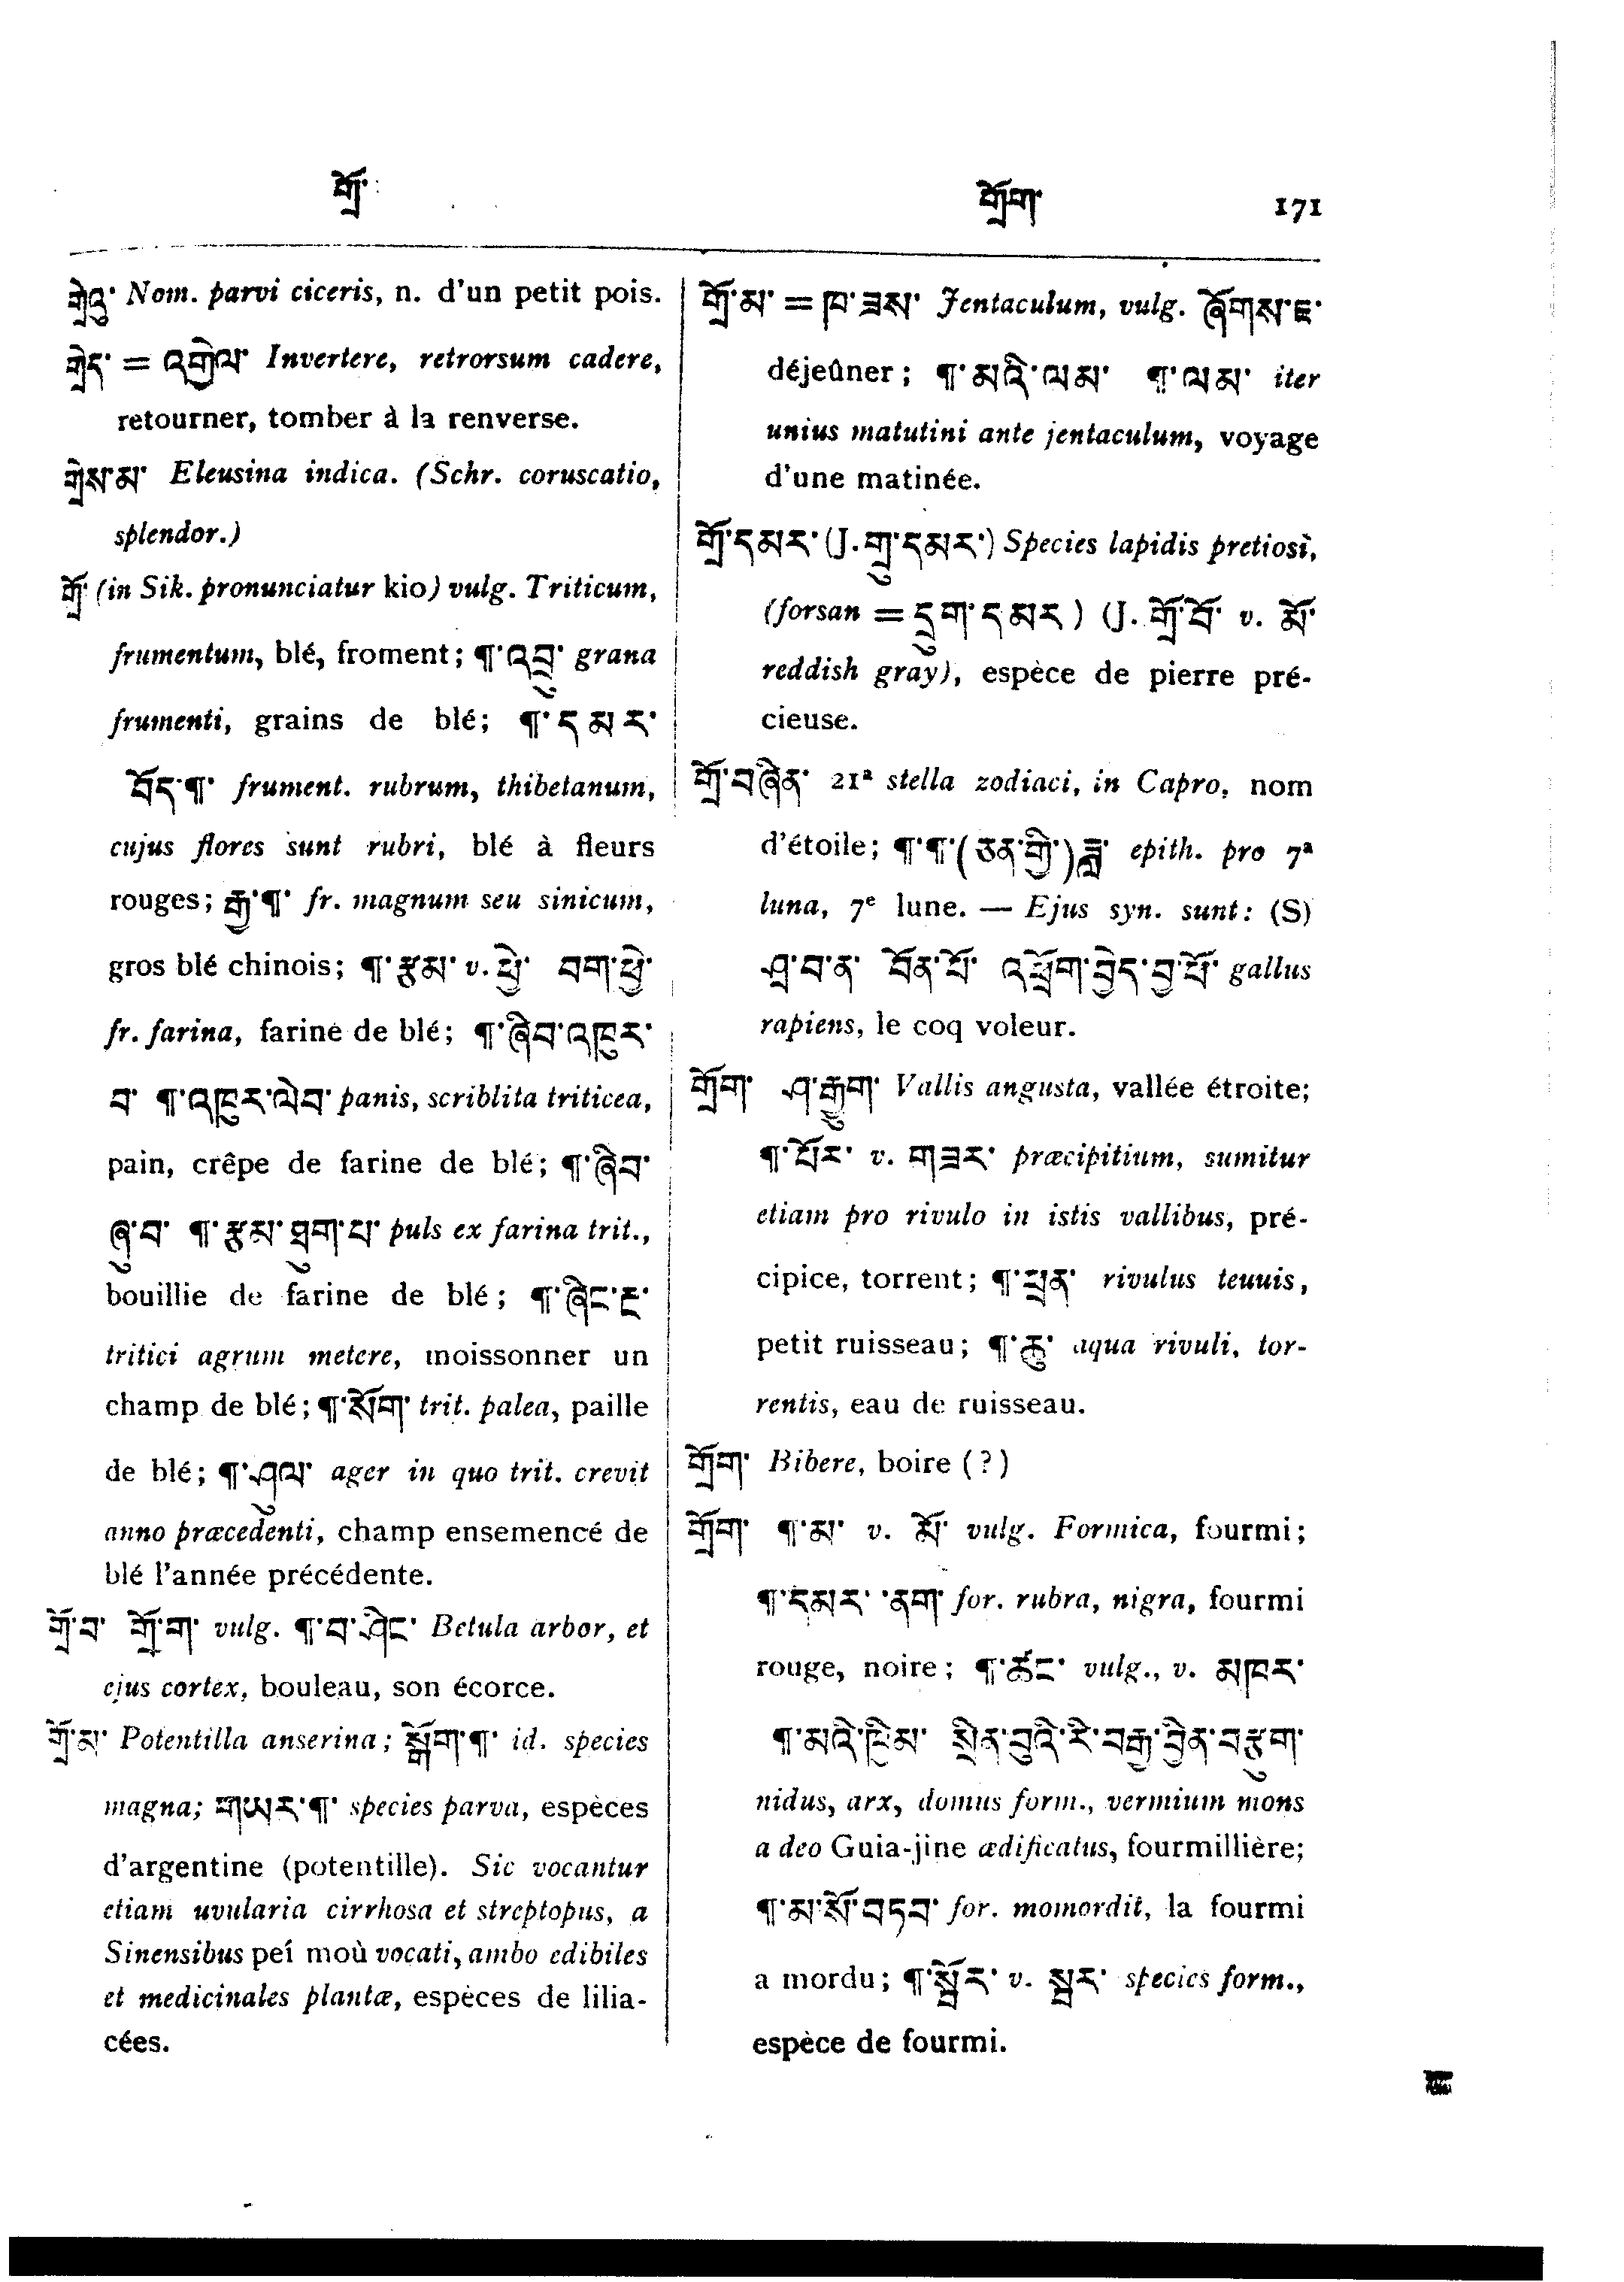 གྲོ་
གྲོག་ 171
གྲེའུ་ Nom. parvi ciceris, n. d'un petit pois.
གྲེད་ = འགྲེལ་ Invertere, retrorsum cadere,
retourner, tomber à la renverse.
གྲེས་མ་ Eleusina indica. (Schr. coruscatio,
splendor.)
གྲོ་ (in Sik. pronunciatur kio) vulg. Triticum,
frumentum, blé, froment; ¶་འབྲུ་ grana
frumenti, grains de blé; ¶་དམར་
བོད་¶་ frument. rubrum, thibetanum,
cujus flores sunt rubri, blé à fleurs
rouges; རྒྱ་¶་ fr. magnum seu sinicum,
gros blé chinois; ¶་རྩམ་ v. ཕྱེ་ བག་ཕྱེ་
fr. farina, farine de blé; ¶་ཞིབ་འཁུར་
བ་ ¶་འཁུར་ལེབ་ panis, scriblita triticea,
pain, crêpe de farine de blé; ¶་ཞིབ་
ཞུ་བ་ ¶་རྩམ་ཐུག་པ་ puls ex farina trit.,
bouillie de farine de blé; ¶་ཞིང་རྔ་
tritici agrum metere, moissonner un
champ de blé; ¶་སོག་ trit. palea, paille
de blé; ¶་ཤུལ་ ager in quo trit. crevit
anno præcedenti, champ ensemencé de
blé l'année précédente.
གྲོ་བ་ གྲོ་ག་ vulg. ¶་བ་ཤིང་ Betula arbor, et
ejus cortex, bouleau, son écorce.
གྲོ་མ་ Potentilla anserina; སྒྲོག་¶་ id. species
magna; གཡར་¶་ species parva, espèces
d'argentine (potentille). Sic vocantur
etiam uvularia cirrhosa et streptopus, a
Sinensibus peí moù vocati, ambo edibiles
et medicinales plantæ, espèces de lilia-
cées.
གྲོ་མ་ = ཁ་ཟས་ Jentaculum, vulg. ཞོགས་ཇ་
déjeûner; ¶་མའི་ལམ་ ¶་ལམ་ iter
unius matutini ante jentaculum, voyage
d'une matinée.
གྲོ་དམར་ (J. གྲུ་དམར་) Species lapidis pretiosi,
(forsan = དྲུག་དམར) (J. གྲོ་བོ་ v. མོ་
reddish gray), espèce de pierre pré-
cieuse.
གྲོ་བཞིན་ 21ª stella zodiaci, in Capro, nom
d'étoile; ¶་¶་(ཅན་གྱི་)ཟླ་ epith. pro 7ª
luna, 7e lune. — Ejus syn. sunt: (S)
ཤྲ་བ་ན་ བོན་པོ་ འཕྲོག་བྱེད་བྱ་ཕོ་ gallus
rapiens, le coq voleur.
གྲོག་ ཤ་རྒྱུག་ Vallis angusta, vallée étroite;
¶་པོར་ v. གཟར་ præcipitium, sumitur
etiam pro rivulo in istis vallibus, pré-
cipice, torrent; ¶་ཕྲན་ rivulus teuuis,
petit ruisseau; ¶་ཆུ་ aqua rivuli, tor-
rentis, eau de ruisseau.
གྲོག་ Bibere, boire (?)
གྲོག་ ¶་མ་ v. མོ་ vulg. Formica, fourmi;
¶་དམར་ ་ནག་ for. rubra, nigra, fourmi
rouge, noire; ¶་ཚང་ vulg., v. མཁར་
¶་མའི་ཁྱིམ་ སྲིན་བུའི་རི་བརྒྱ་བྱིན་བརྩུག་
nidus, arx, domus form., vermium mons
a deo Guia-jine ædificatus, fourmillière;
¶་མ་སོ་བཏབ་ for. momordit, la fourmi
a mordu; ¶་སྦྲོར་ v. སྦྲར་ species form.,
espèce de fourmi.